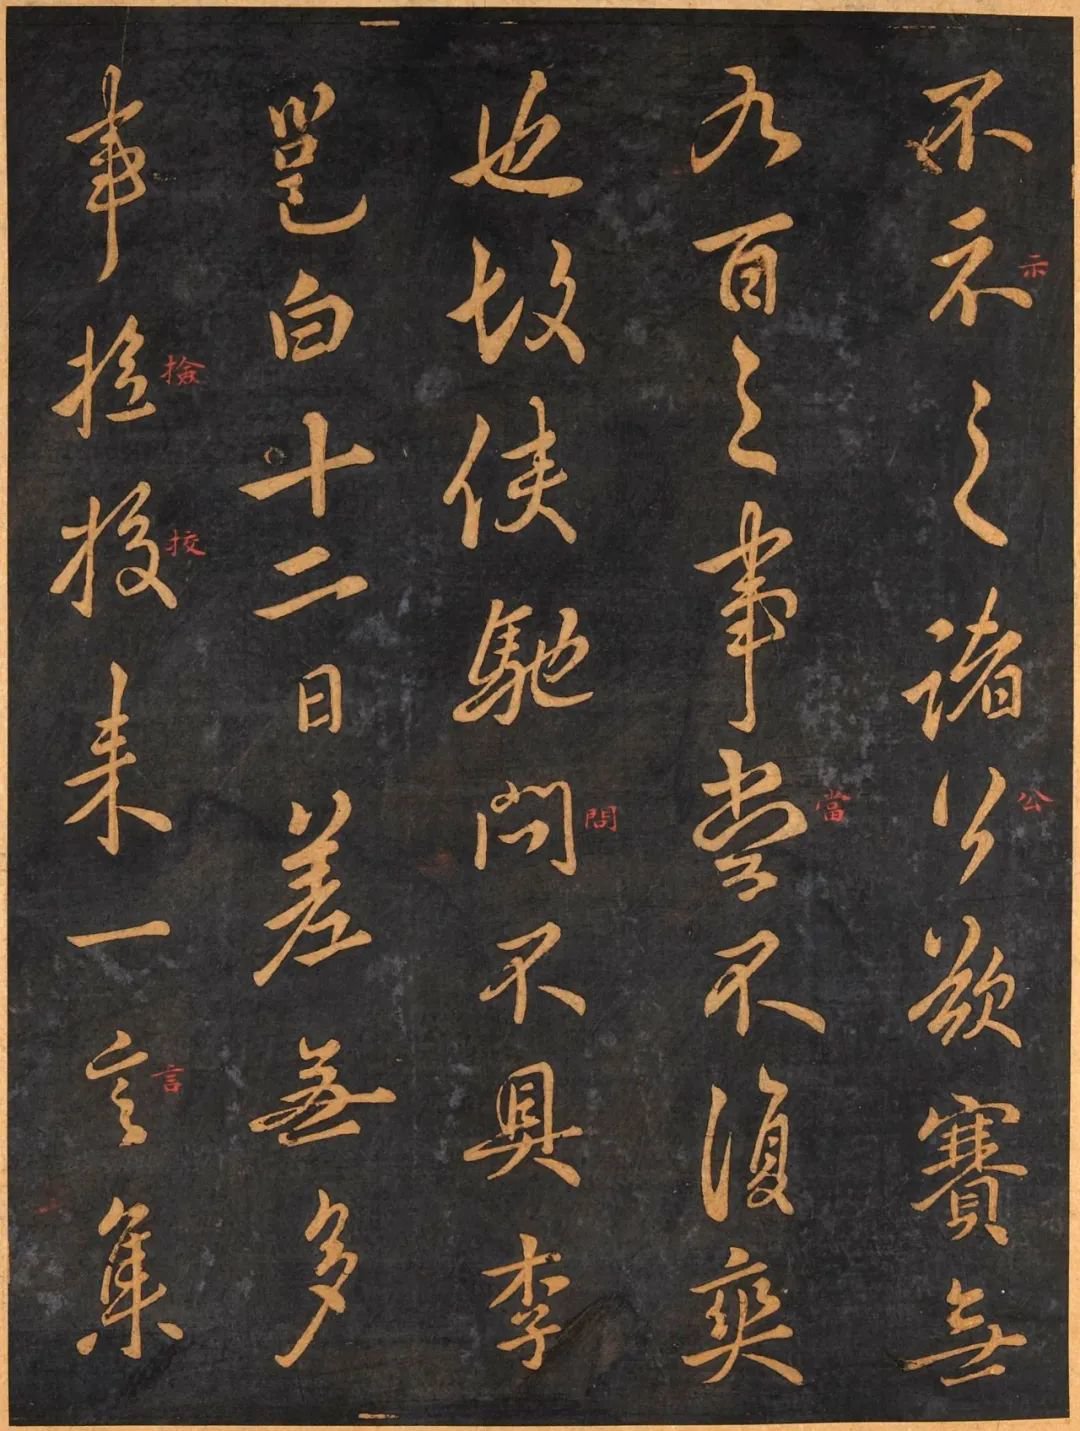 不示之諸公欲賽無
示
公
九百之事當不復爽
當
也故使馳問不具李
問
邕白十二日差無多
事撿挍来一言集
撿
挍
言